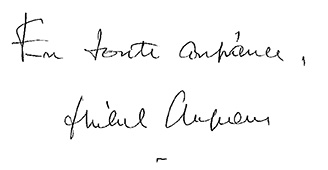 En toute confiance,
Michel